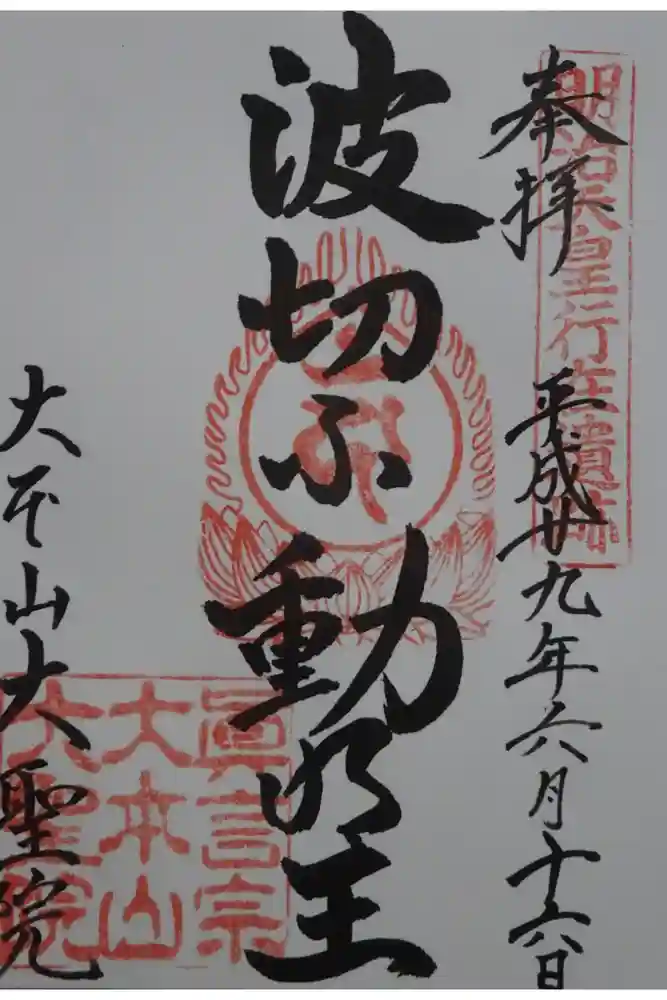 奉拝
平成廿九年六月十六日
明治天皇行在遺跡
波切不動明王
大本山大聖院
眞言宗
大本山
大聖院